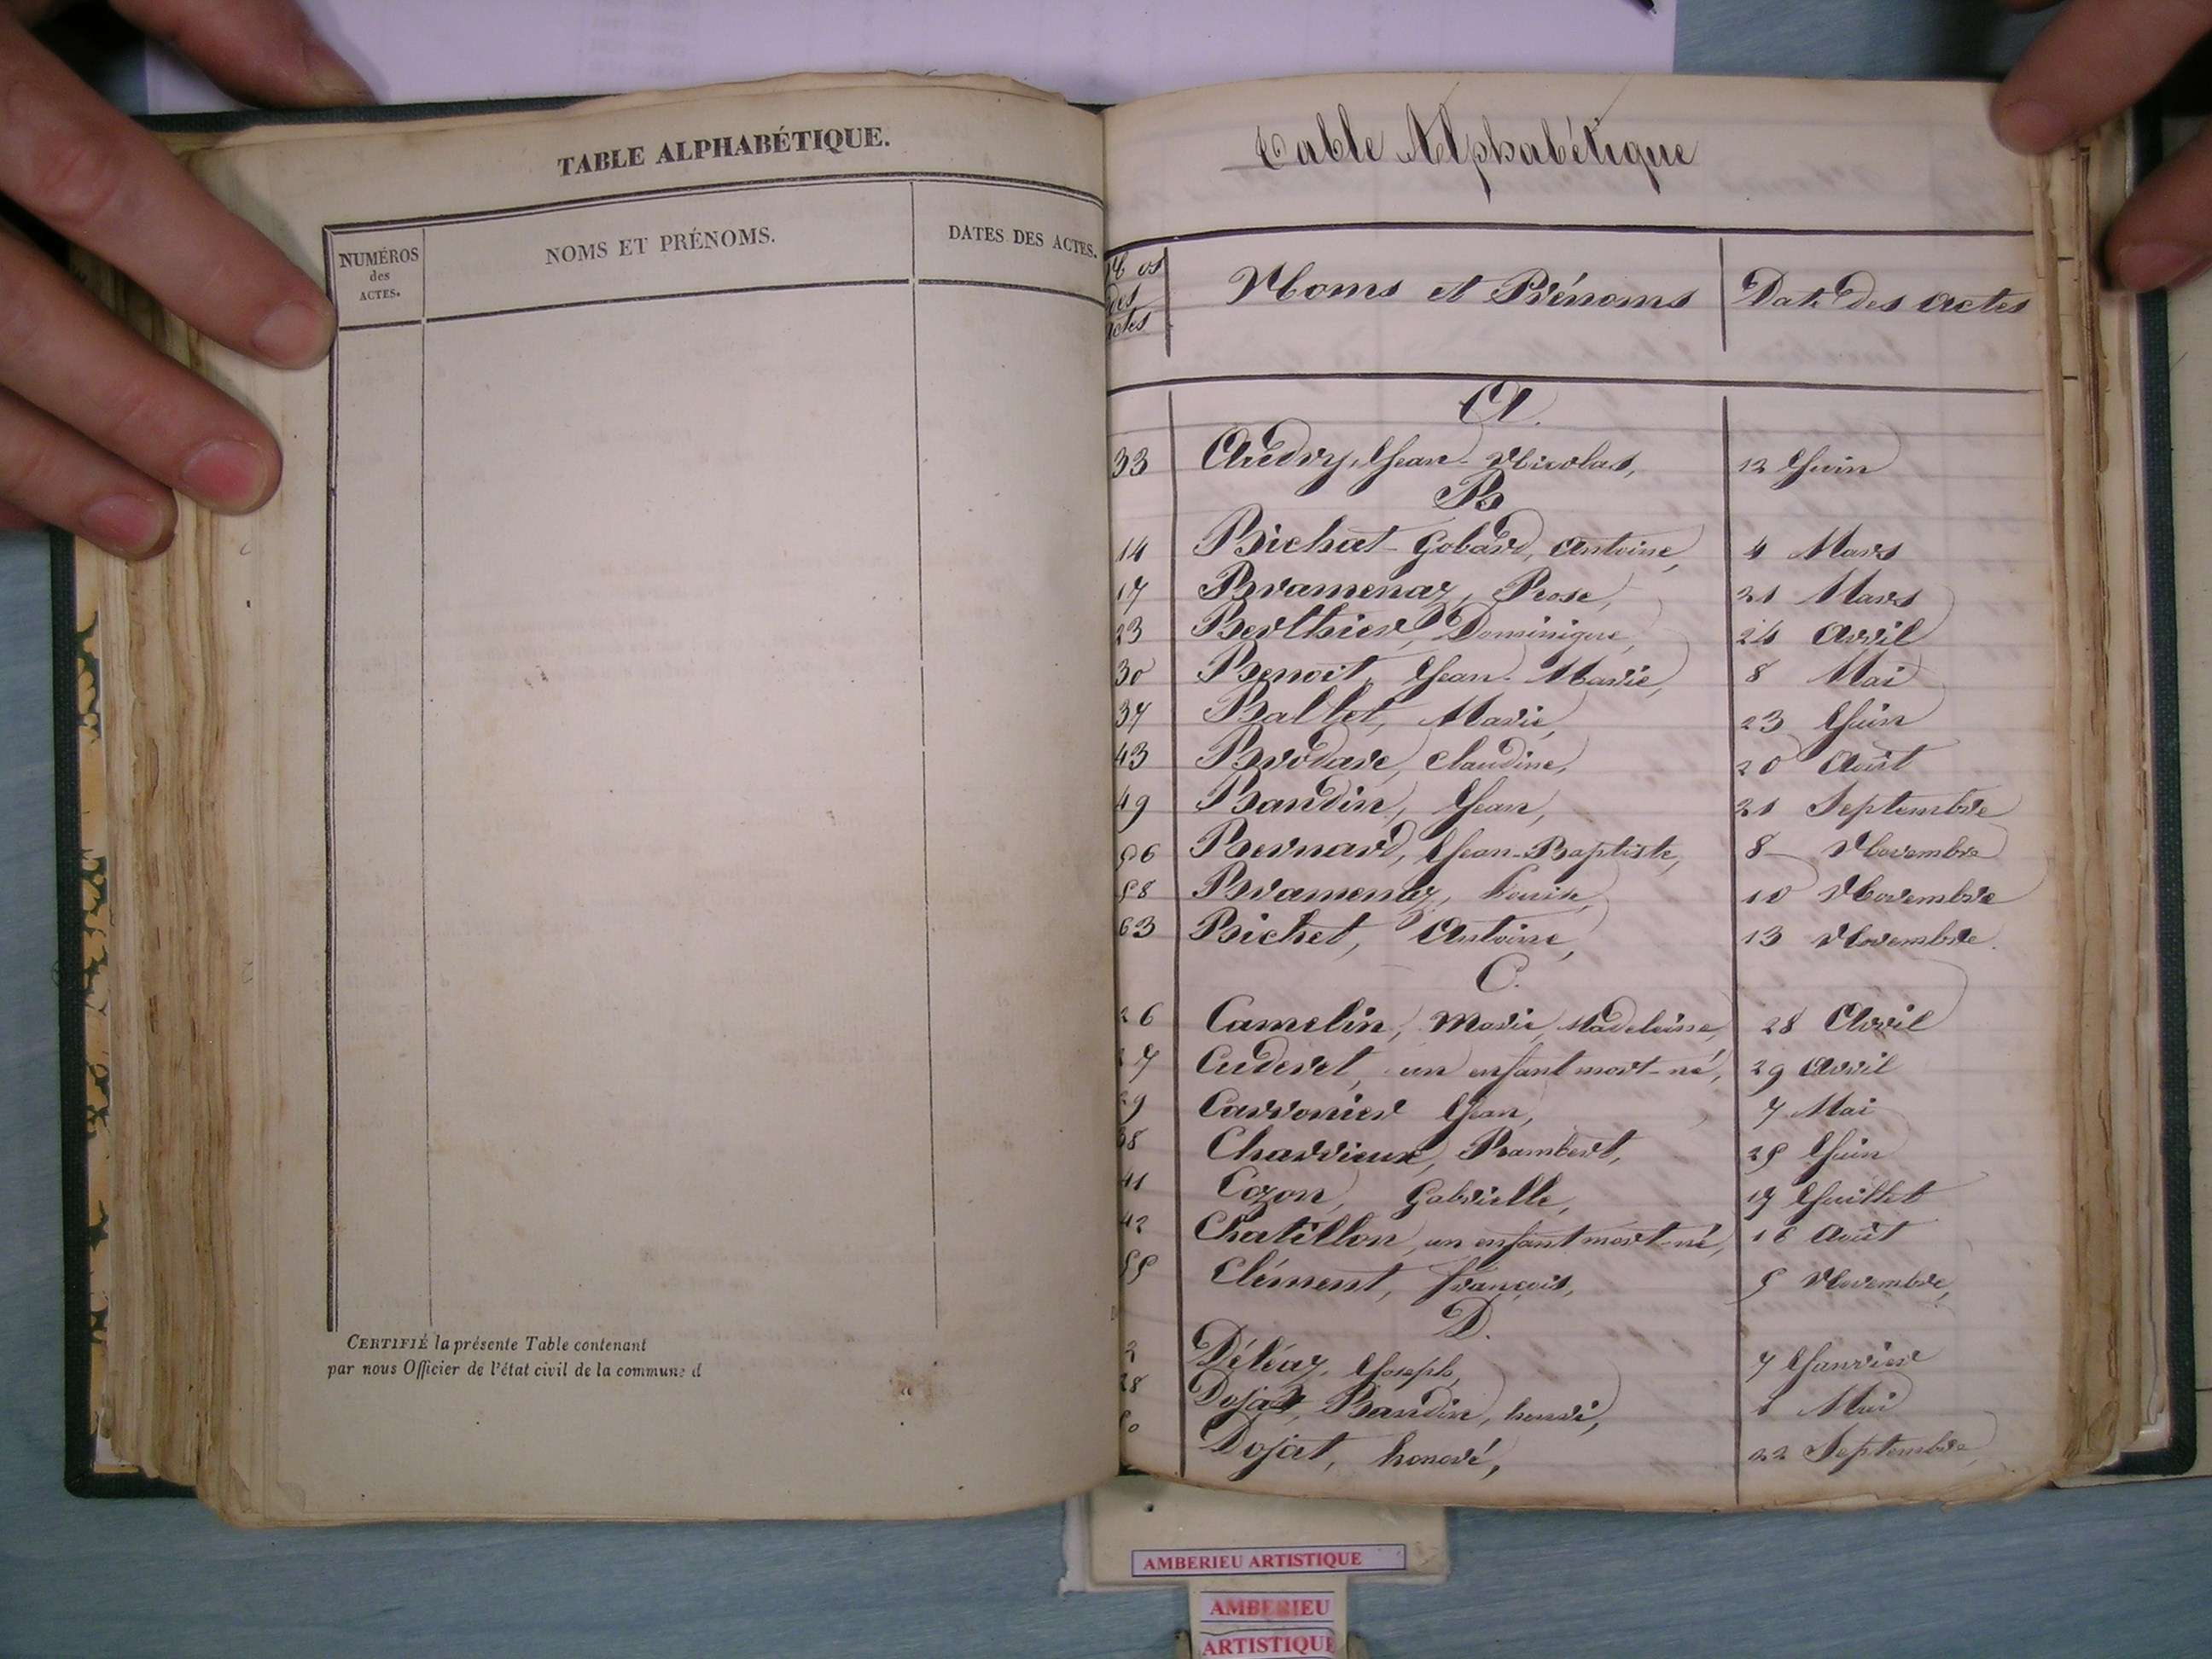 TABLE ALPHABÉTIQUE.
NUMÉROS
des
ACTES.
NOMS ET PRÉNOMS.
DATES DES ACTES.
CERTIFIÉ la présente Table contenant
par nous Officier de l'état civil de la commune d
Table Alphabétique
Nos
des
actes
Noms et Prénoms
Date des actes
A.
33 Audry, Jean-Nicolas, 12 Juin
B
14 Bichat-Gobard, Antoine, 4 Mars
17 Bramenaz, Rose, 21 Mars
23 Berthier, Dominique, 24 Avril
30 Benoit, Jean-Marie, 8 Mai
37 Ballet, Marie, 23 Juin
43 Brodare, Claudine, 20 Août
49 Baudin, Jean, 21 Septembre
56 Bernard, Jean-Baptiste, 8 Novembre
58 Bramenaz, Louise, 10 Novembre
63 Bichet, Antoine, 13 Novembre.
C.
26 Camelin, Marie, Madeleine, 28 Avril
27 Cuderet, un enfant mort-né, 29 Avril
29 Carronier Jean, 7 Mai
38 Charvieux, Rambert, 25 Juin
41 Cozon, Gabrielle, 17 Juillet
42 Chatillon, un enfant mort-né, 16 Août
55 Clément, françois, 5 Novembre,
D.
2 Déléaz, Joseph, 7 Janvier
28 Dojat, Baudin, henri, Mai
50 Dojat, honoré, 22 Septembre,
AMBERIEU ARTISTIQUE
AMBERIEU
ARTISTIQUE